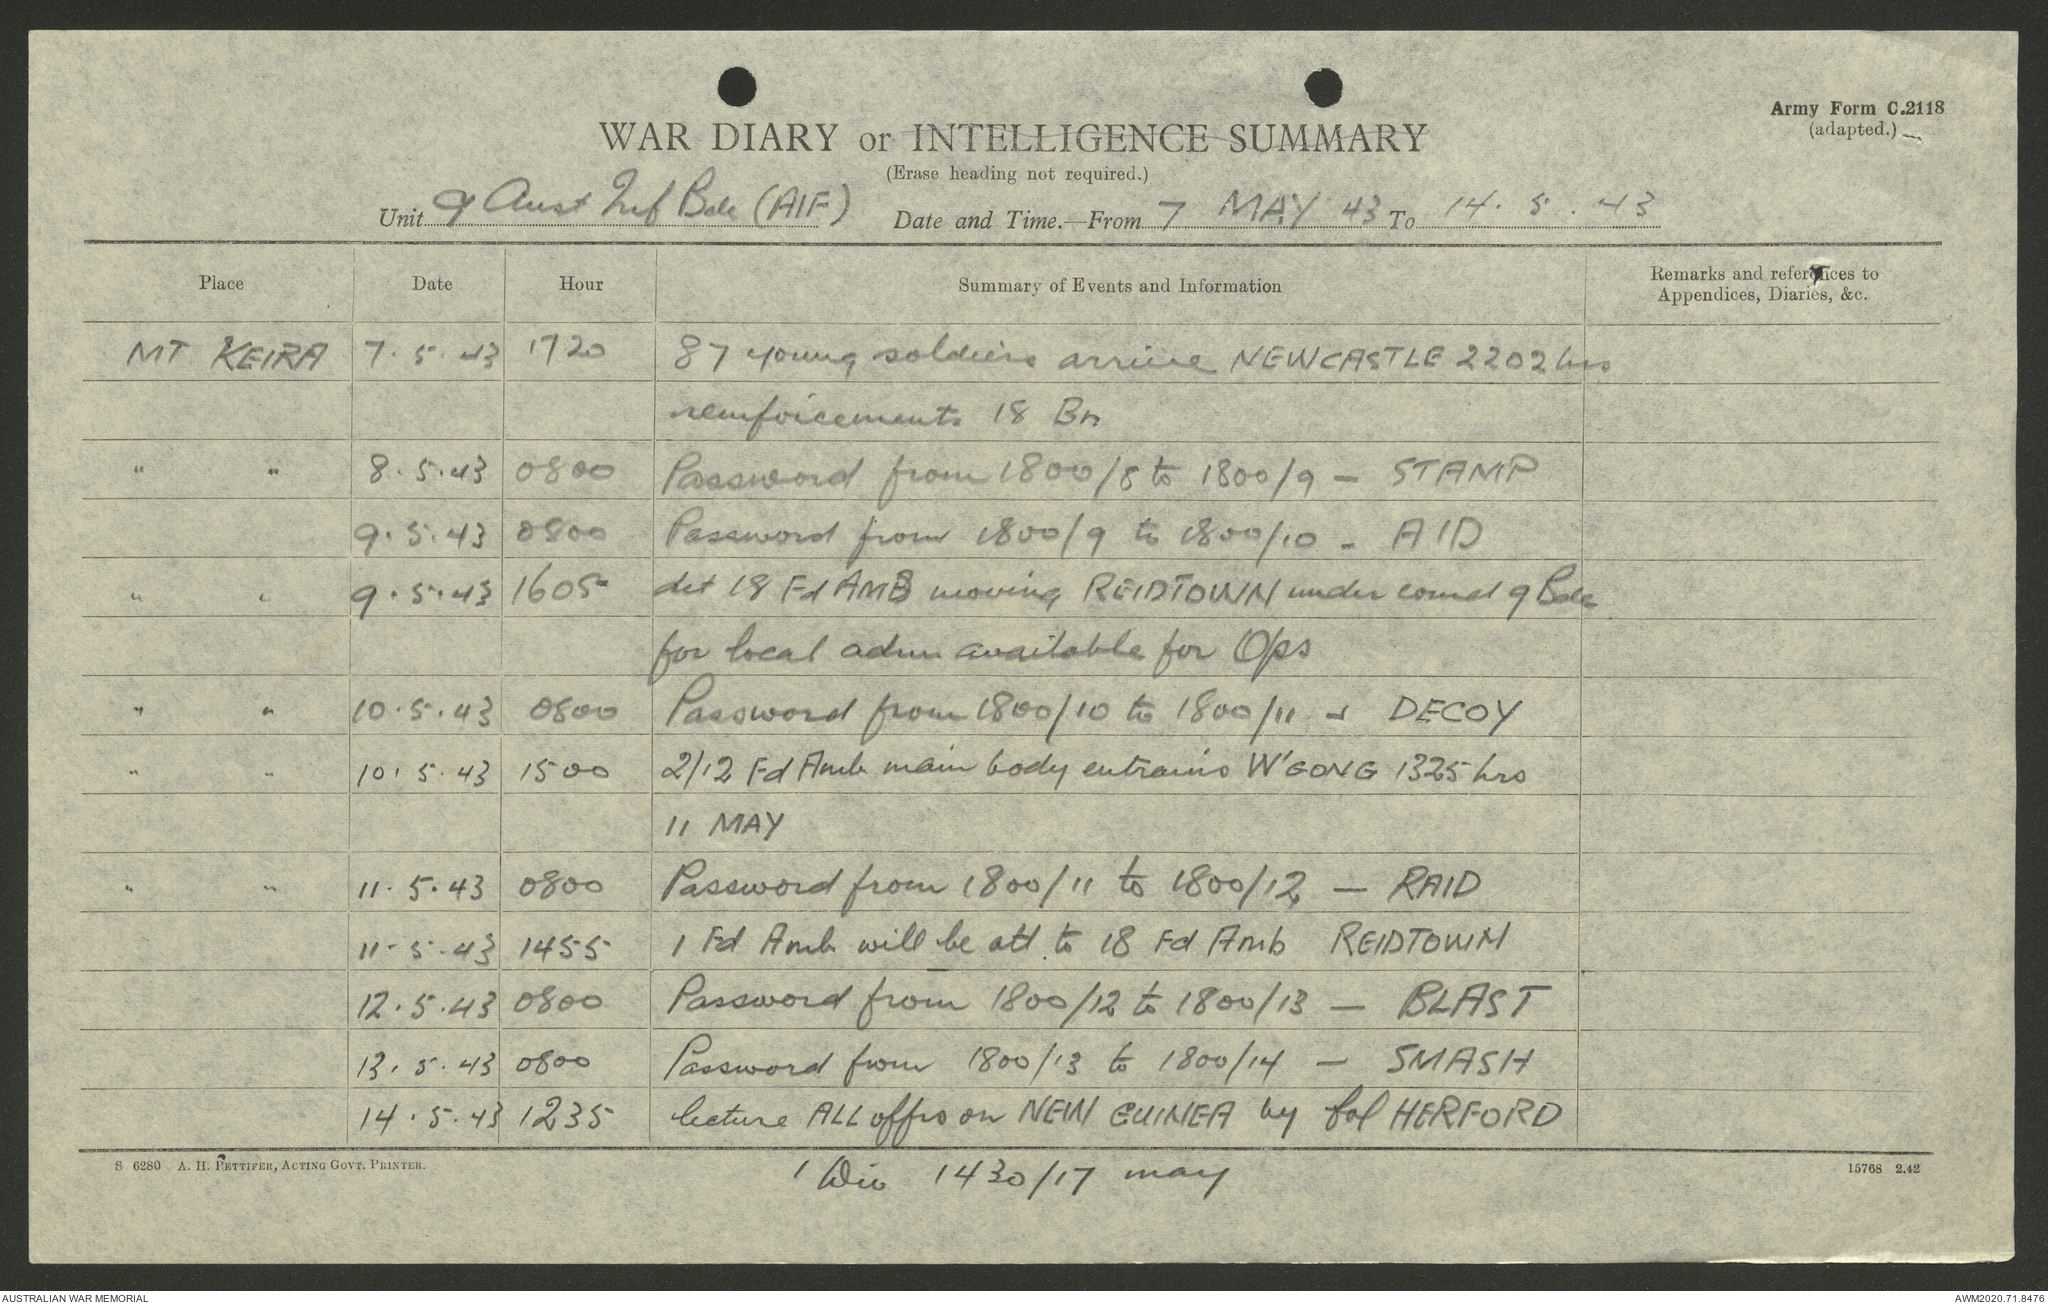 Army Form C.2118
(adapted.)
WAR DIARY or INTELLIGENCE SUMMARY
(Erase heading not required.)
Unit 9 Aust Inf Bde (AIF) Date and Time.—From 7 MAY 43 To 14.5.43
Place Date Hour Summary of Events and Information Remarks and references to Appendices, Diaries, &c.
MT KEIRA 7.5.43 1720 87 young soldiers arrive NEWCASTLE 2202 hrs
reinforcements 18 Bn
" " 8.5.43 0800 Password from 1800/8 to 1800/9 — STAMP
9.5.43 0800 Password from 1800/9 to 1800/10 - AID
" " 9.5.43 1605 det 18 Fd AMB moving REIDTOWN under comd 9 Bde
for local adm available for Ops
" " 10.5.43 0800 Password from 1800/10 to 1800/11 - DECOY
" " 10.5.43 1500 2/12 Fd Amb main body entrains W'GONG 1325 hrs
11 MAY
" " 11.5.43 0800 Password from 1800/11 to 1800/12 — RAID
11-5.43 1455 1 Fd Amb will be att to 18 Fd Amb REIDTOWN
12.5.43 0800 Password from 1800/12 to 1800/13 — BLAST
13.5.43 0800 Password from 1800/13 to 1800/14 — SMASH
14.5.43 1235 lecture ALL offrs on NEW GUINEA by Col HERFORD
1 Div 1430/17 may
S 6280 A. H. PETTIFER, ACTING GOVT. PRINTER.
15768 2.42
AUSTRALIAN WAR MEMORIAL
AWM2020.71.8476